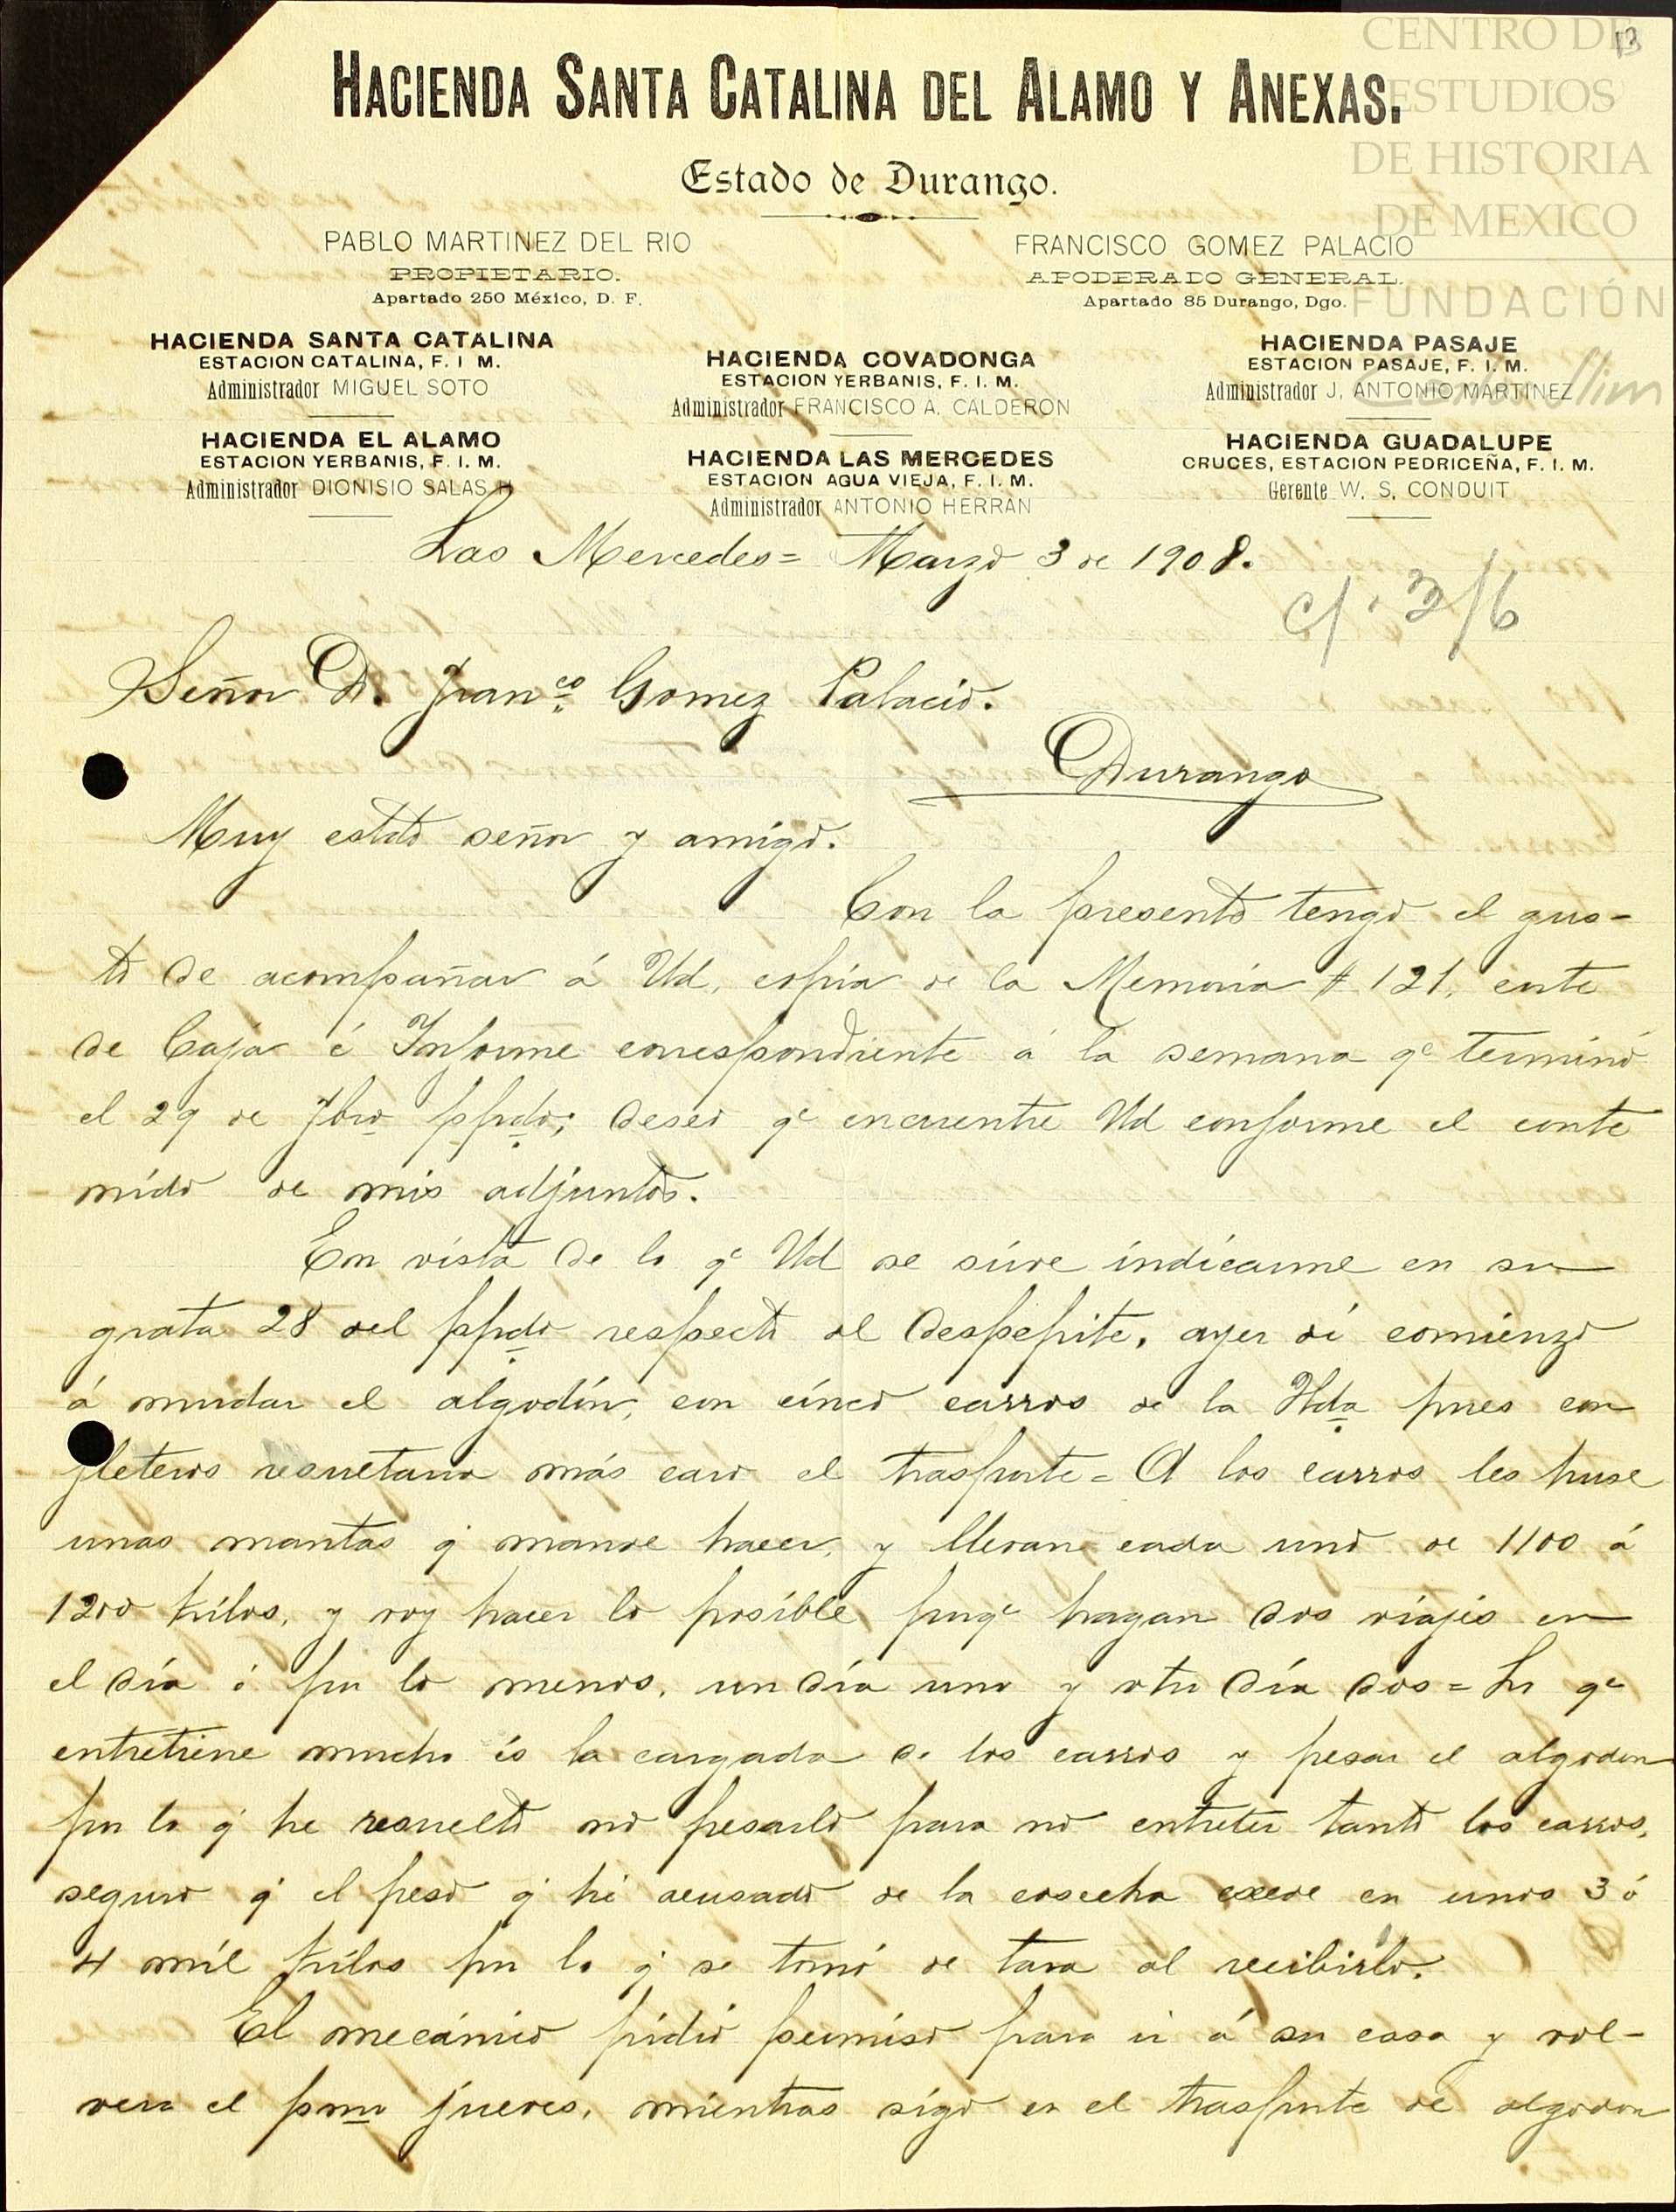 CENTRO DE
ESTUDIOS
DE HISTORIA
DE MEXICO
FUNDACIÓN
Carlos Slim
13
HACIENDA SANTA CATALINA DEL ALAMO Y ANEXAS.
Estado de Durango.
PABLO MARTINEZ DEL RIO
PROPIETARIO.
Apartado 250 México, D. F.
FRANCISCO GOMEZ PALACIO
APODERADO GENERAL.
Apartado 85 Durango, Dgo.
HACIENDA SANTA CATALINA
ESTACION CATALINA, F. I M.
Administrador MIGUEL SOTO
HACIENDA EL ALAMO
ESTACION YERBANIS, F. I. M.
Administrador DIONISIO SALAS H
HACIENDA COVADONGA
ESTACION YERBANIS, F. I. M.
Administrador FRANCISCO A. CALDERON
HACIENDA LAS MERCEDES
ESTACION AGUA VIEJA, F. I. M.
Administrador ANTONIO HERRAN
HACIENDA PASAJE
ESTACION PASAJE, F. I. M.
Administrador J. ANTONIO MARTINEZ
HACIENDA GUADALUPE
CRUCES, ESTACION PEDRICEÑA, F. I. M.
Gerente W. S. CONDUIT
Las Mercedes= Marzo 3 de 1908.
c/. 3/6
Señor D. Franco Gomez Palacio.
Durango
Muy estdo señor y amigo.
Con la presente tengo el gus-
to de acompañar á Ud, copia de la Memoria # 121, corte
de Caja é Informe correspondiente á la semana qe terminó
el 29 de Fbro ppdo; deseo qe encuentre Ud conforme el conte
nido de mis adjuntos.
En vista de lo qe Ud se sirve indicarme en su
grata 28 del ppdo respecto al despepite, ayer dí comienzo
á mudar el algodón, con cinco carros de la Hda pues con
fleteros resultaria más caro el trasporte = A los carros les puse
unas mantas q mande hacer, y llevan cada uno de 1100 á
1200 kilos, y voy hacer lo posible porqe hagan dos viajes en
el día ó por lo menos, un día uno y otro día dos = Lo qe
entretiene mucho és la cargada de los carros y pesar el algodon
por lo q he resuelto no pesarlo para no entreter tanto los carros,
seguro q el peso q hé acusado de la cosecha exede en unos 3 ó
4 mil kilos por lo q se tomó de tara al recibirlo.
El mecánico pidió permiso para ir á su casa y vol-
vera el pmo jueves, mientras sigo en el trasporte de algodon